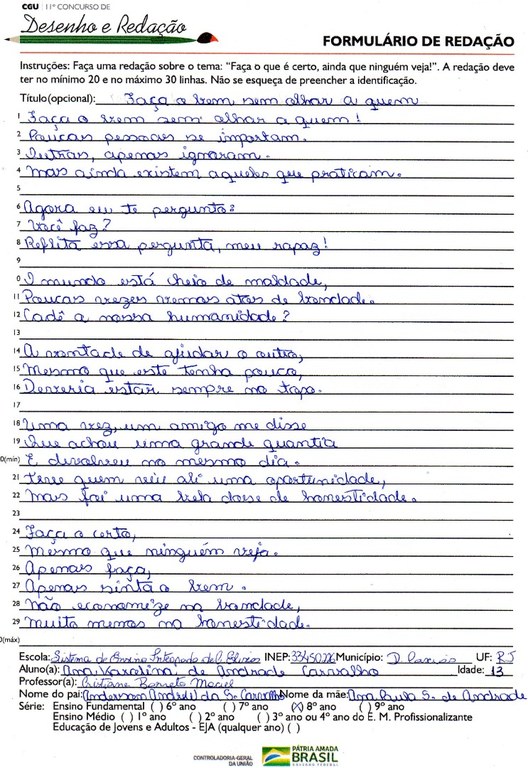 CGU | 11º CONCURSO DE
Desenho e Redação
FORMULÁRIO DE REDAÇÃO
Instruções: Faça uma redação sobre o tema: "Faça o que é certo, ainda que ninguém veja!". A redação deve
ter no mínimo 20 e no máximo 30 linhas. Não se esqueça de preencher a identificação.
Título(opcional): Faça o bem sem olhar a quem
1 Faça o bem sem olhar a quem!
2 Poucas pessoas se importam.
3 Outras, apenas ignoram.
4 Mas ainda existem aqueles que praticam.
5
6 Agora eu te pergunto:
7 Você faz?
8 Reflita essa pergunta, meu rapaz!
9
0 O mundo está cheio de maldade,
11 Poucas vezes vemos atos de bondade.
12 Cadê a nossa humanidade?
13
14 A vontade de ajudar o outro,
15 Mesmo que este tenha pouco,
16 Deveria estar sempre no topo.
17
18 Uma vez, um amigo me disse
19 Que achou uma grande quantia
0(mín) E devolveu no mesmo dia.
21 Teve quem viu ali uma oportunidade,
22 Mas foi uma bela dose de honestidade.
23
24 Faça o certo,
25 Mesmo que ninguém veja.
26 Apenas faça,
27 Apenas sinta o bem.
28 Não economize na bondade,
29 Muito menos na honestidade.
0(máx)
Escola: Sistema de Ensino Integrado de INEP: Município: D Caxias UF: RJ
Aluno(a): Ana Karolina de Andrade Carvalho Idade: 13
Professor(a): Cristiane Barreto Maciel
Nome do pai: Anderson da S. Carvalho Nome da mãe: Ana S. de Andrade
Série: Ensino Fundamental ( ) 6º ano ( ) 7º ano (X) 8º ano ( ) 9º ano
Ensino Médio ( ) 1º ano ( ) 2º ano ( ) 3º ano ou 4º ano do E. M. Profissionalizante
Educação de Jovens e Adultos - EJA (qualquer ano) ( )
CONTROLADORIA-GERAL
DA UNIÃO
PÁTRIA AMADA
BRASIL
GOVERNO FEDERAL